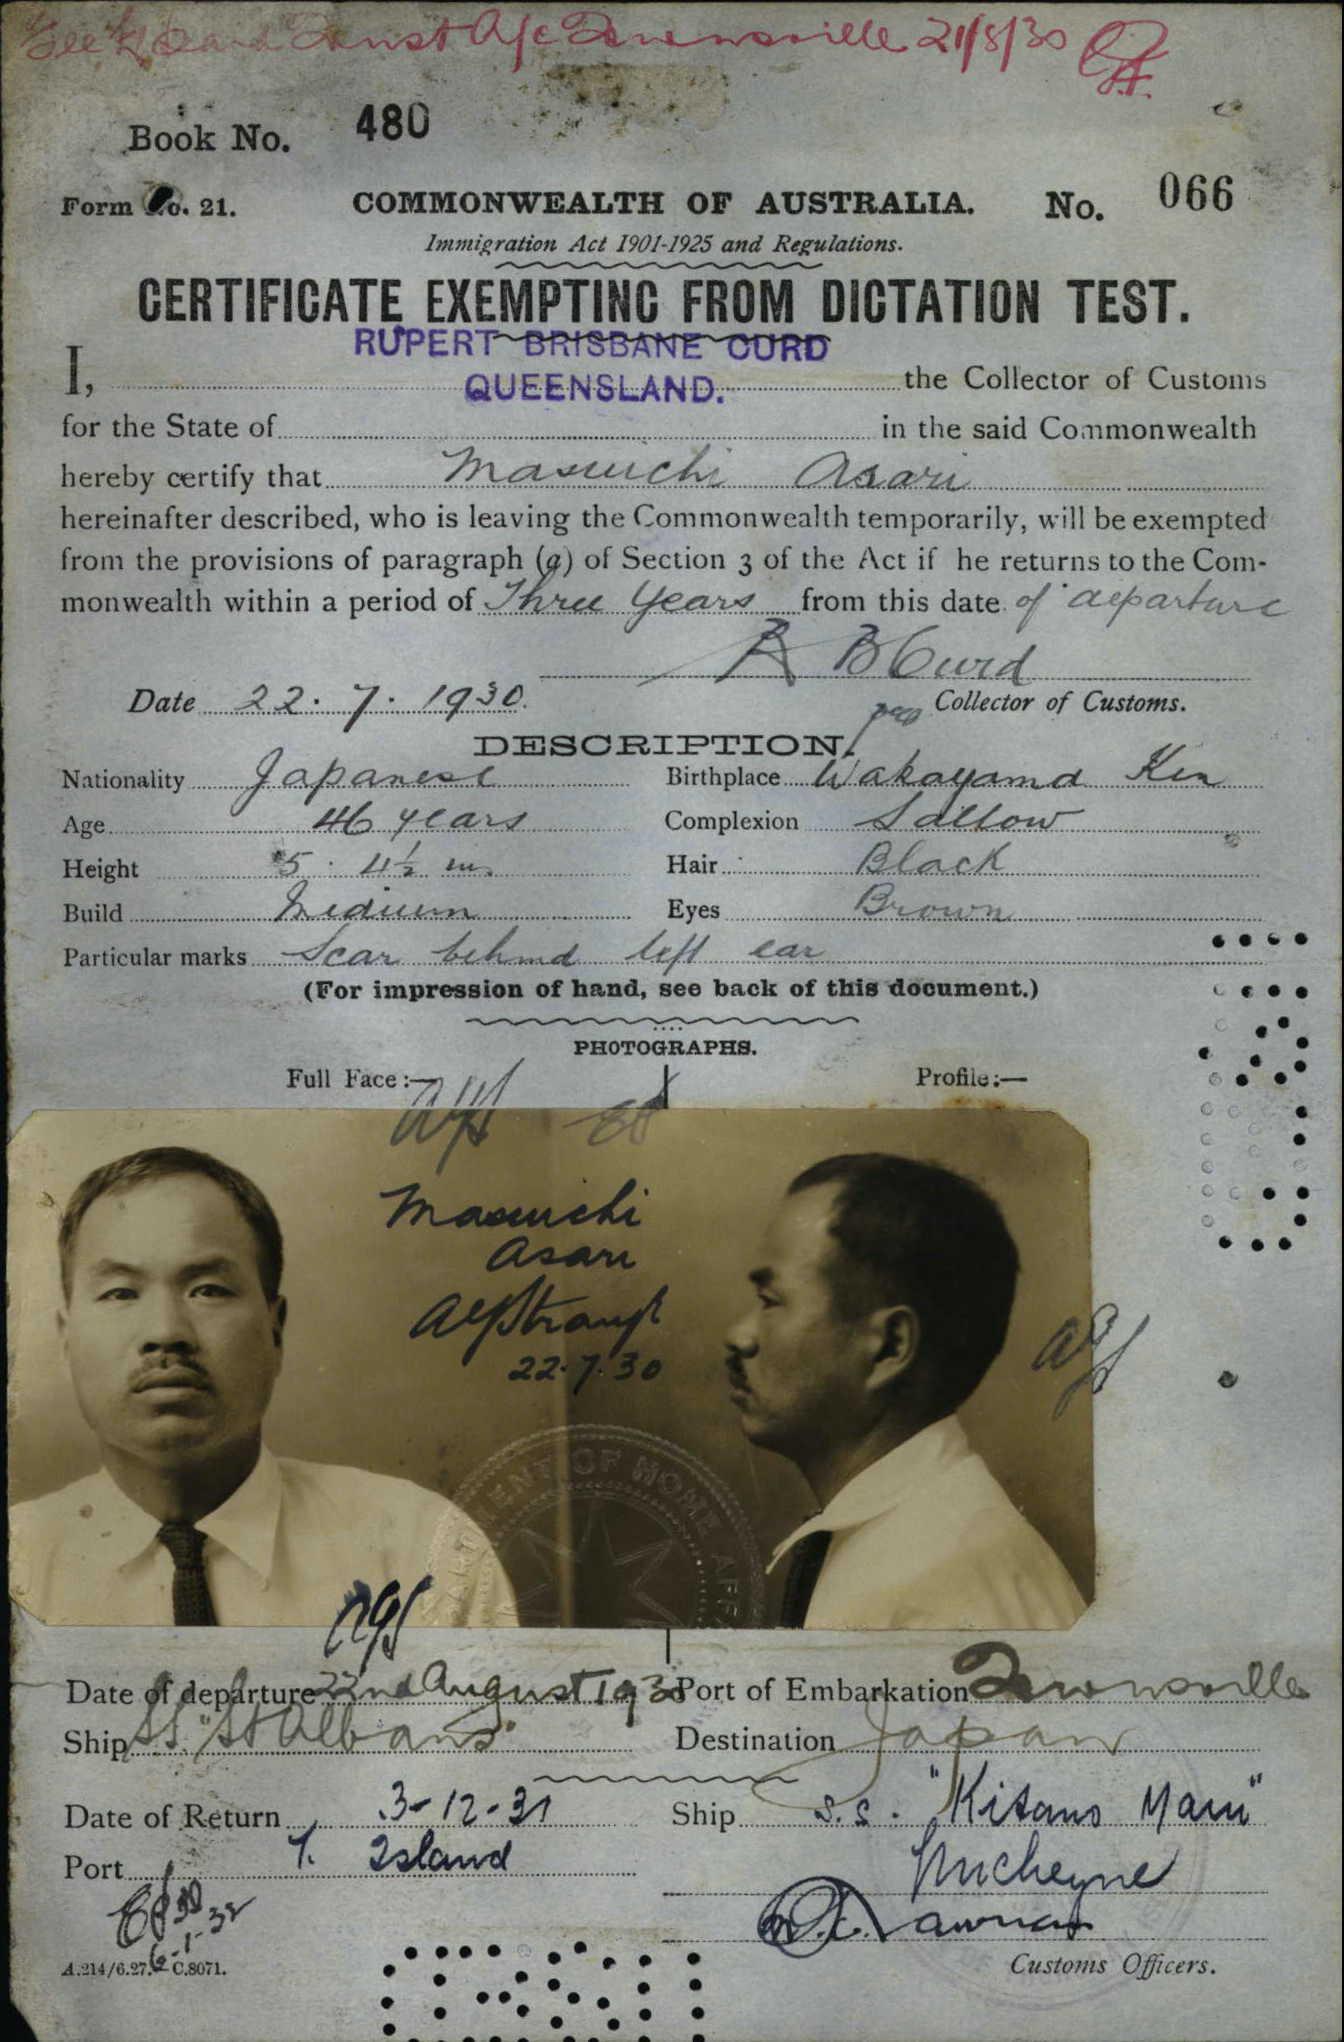 Townsville 21/8/30
Book No. 480
Form No. 21. COMMONWEALTH OF AUSTRALIA. No. 066
Immigration Act 1901-1925 and Regulations.
CERTIFICATE EXEMPTING FROM DICTATION TEST.
RUPERT BRISBANE CURD
I, the Collector of Customs
QUEENSLAND.
for the State of in the said Commonwealth
hereby certify that Masuichi Asari
hereinafter described, who is leaving the Commonwealth temporarily, will be exempted
from the provisions of paragraph (a) of Section 3 of the Act if he returns to the Com-
monwealth within a period of Three Years from this date of departure
R B Curd
Date 22. 7. 1930. Collector of Customs.
DESCRIPTION.
Nationality Japanese Birthplace Wakayama Ken
Age 46 years Complexion Sallow
Height 5. 4½ ins. Hair Black
Build Medium Eyes Brown
Particular marks Scar behind left ear
(For impression of hand, see back of this document.)
PHOTOGRAPHS.
Full Face:— Profile:—
Masuichi
Asari
22.7.30
DEPARTMENT OF HOME AFFAIRS
Date of departure 22nd August 1930 Port of Embarkation Townsville
Ship SS "St Albans" Destination Japan
Date of Return 3-12-31 Ship s.s. "Kitano Maru"
Port T. Island
6-1-32
Customs Officers.
A.214/6.27. C.8071.